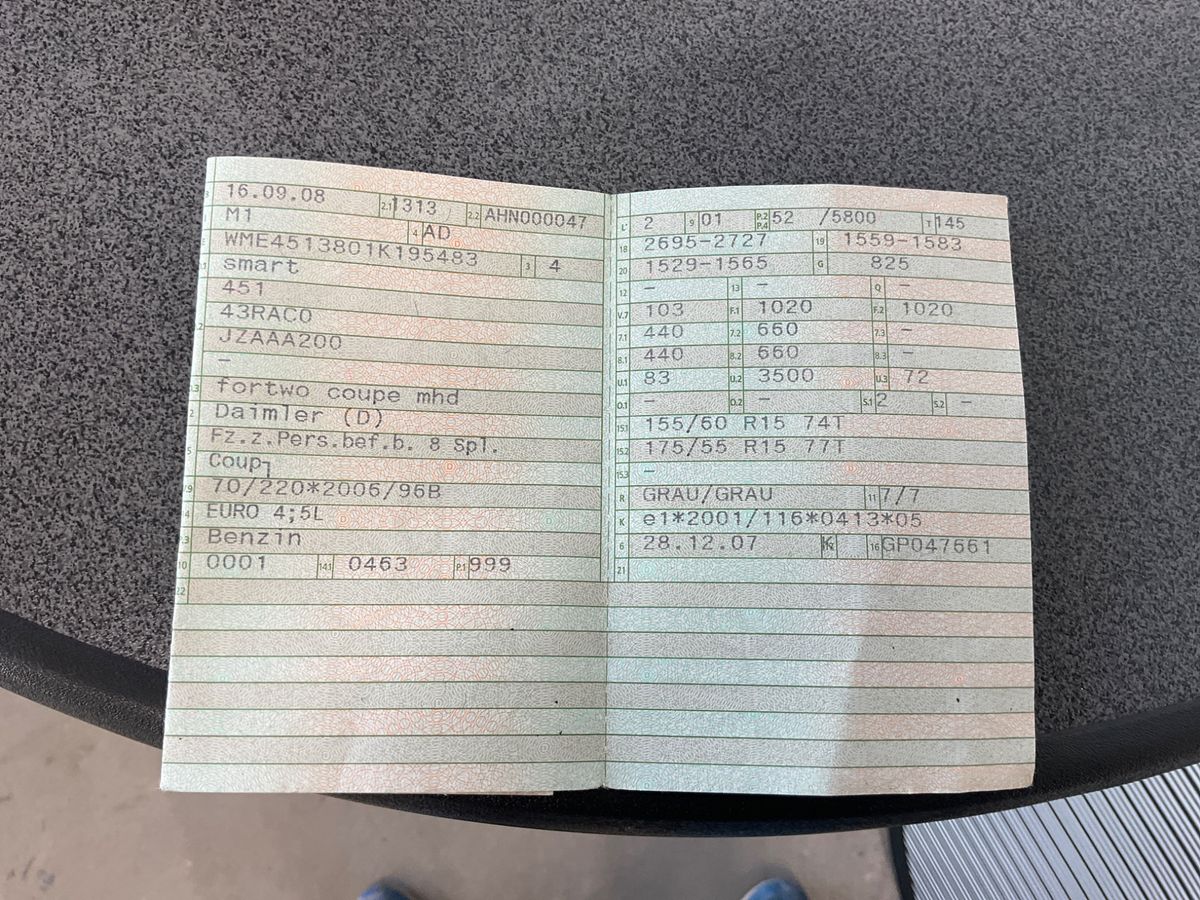 16.09.08 2.1 1313 2.2 AHN000047
M1 4 AD
WME4513801K195483 3 4
smart
451
43RAC0
JZAAA200
–
fortwo coupe mhd
Daimler (D)
Fz.z.Pers.bef.b. 8 Spl.
Coup┐
70/220*2006/96B
EURO 4;5L
Benzin
10 0001 14.1 0463 P.1 999
22
L 2 9 01 P.2 P.4 52 /5800 T 145
18 2695-2727 19 1559-1583
20 1529-1565 G 825
12 – 13 – Q –
V.7 103 F.1 1020 F.2 1020
7.1 440 7.2 660 7.3 –
8.1 440 8.2 660 8.3 –
U.1 83 U.2 3500 U.3 72
O.1 – O.2 – S.1 2 S.2 –
15.1 155/60 R15 74T
15.2 175/55 R15 77T
15.3 –
R GRAU/GRAU 11 7/7
K e1*2001/116*0413*05
6 28.12.07 K 16 GP047661
21